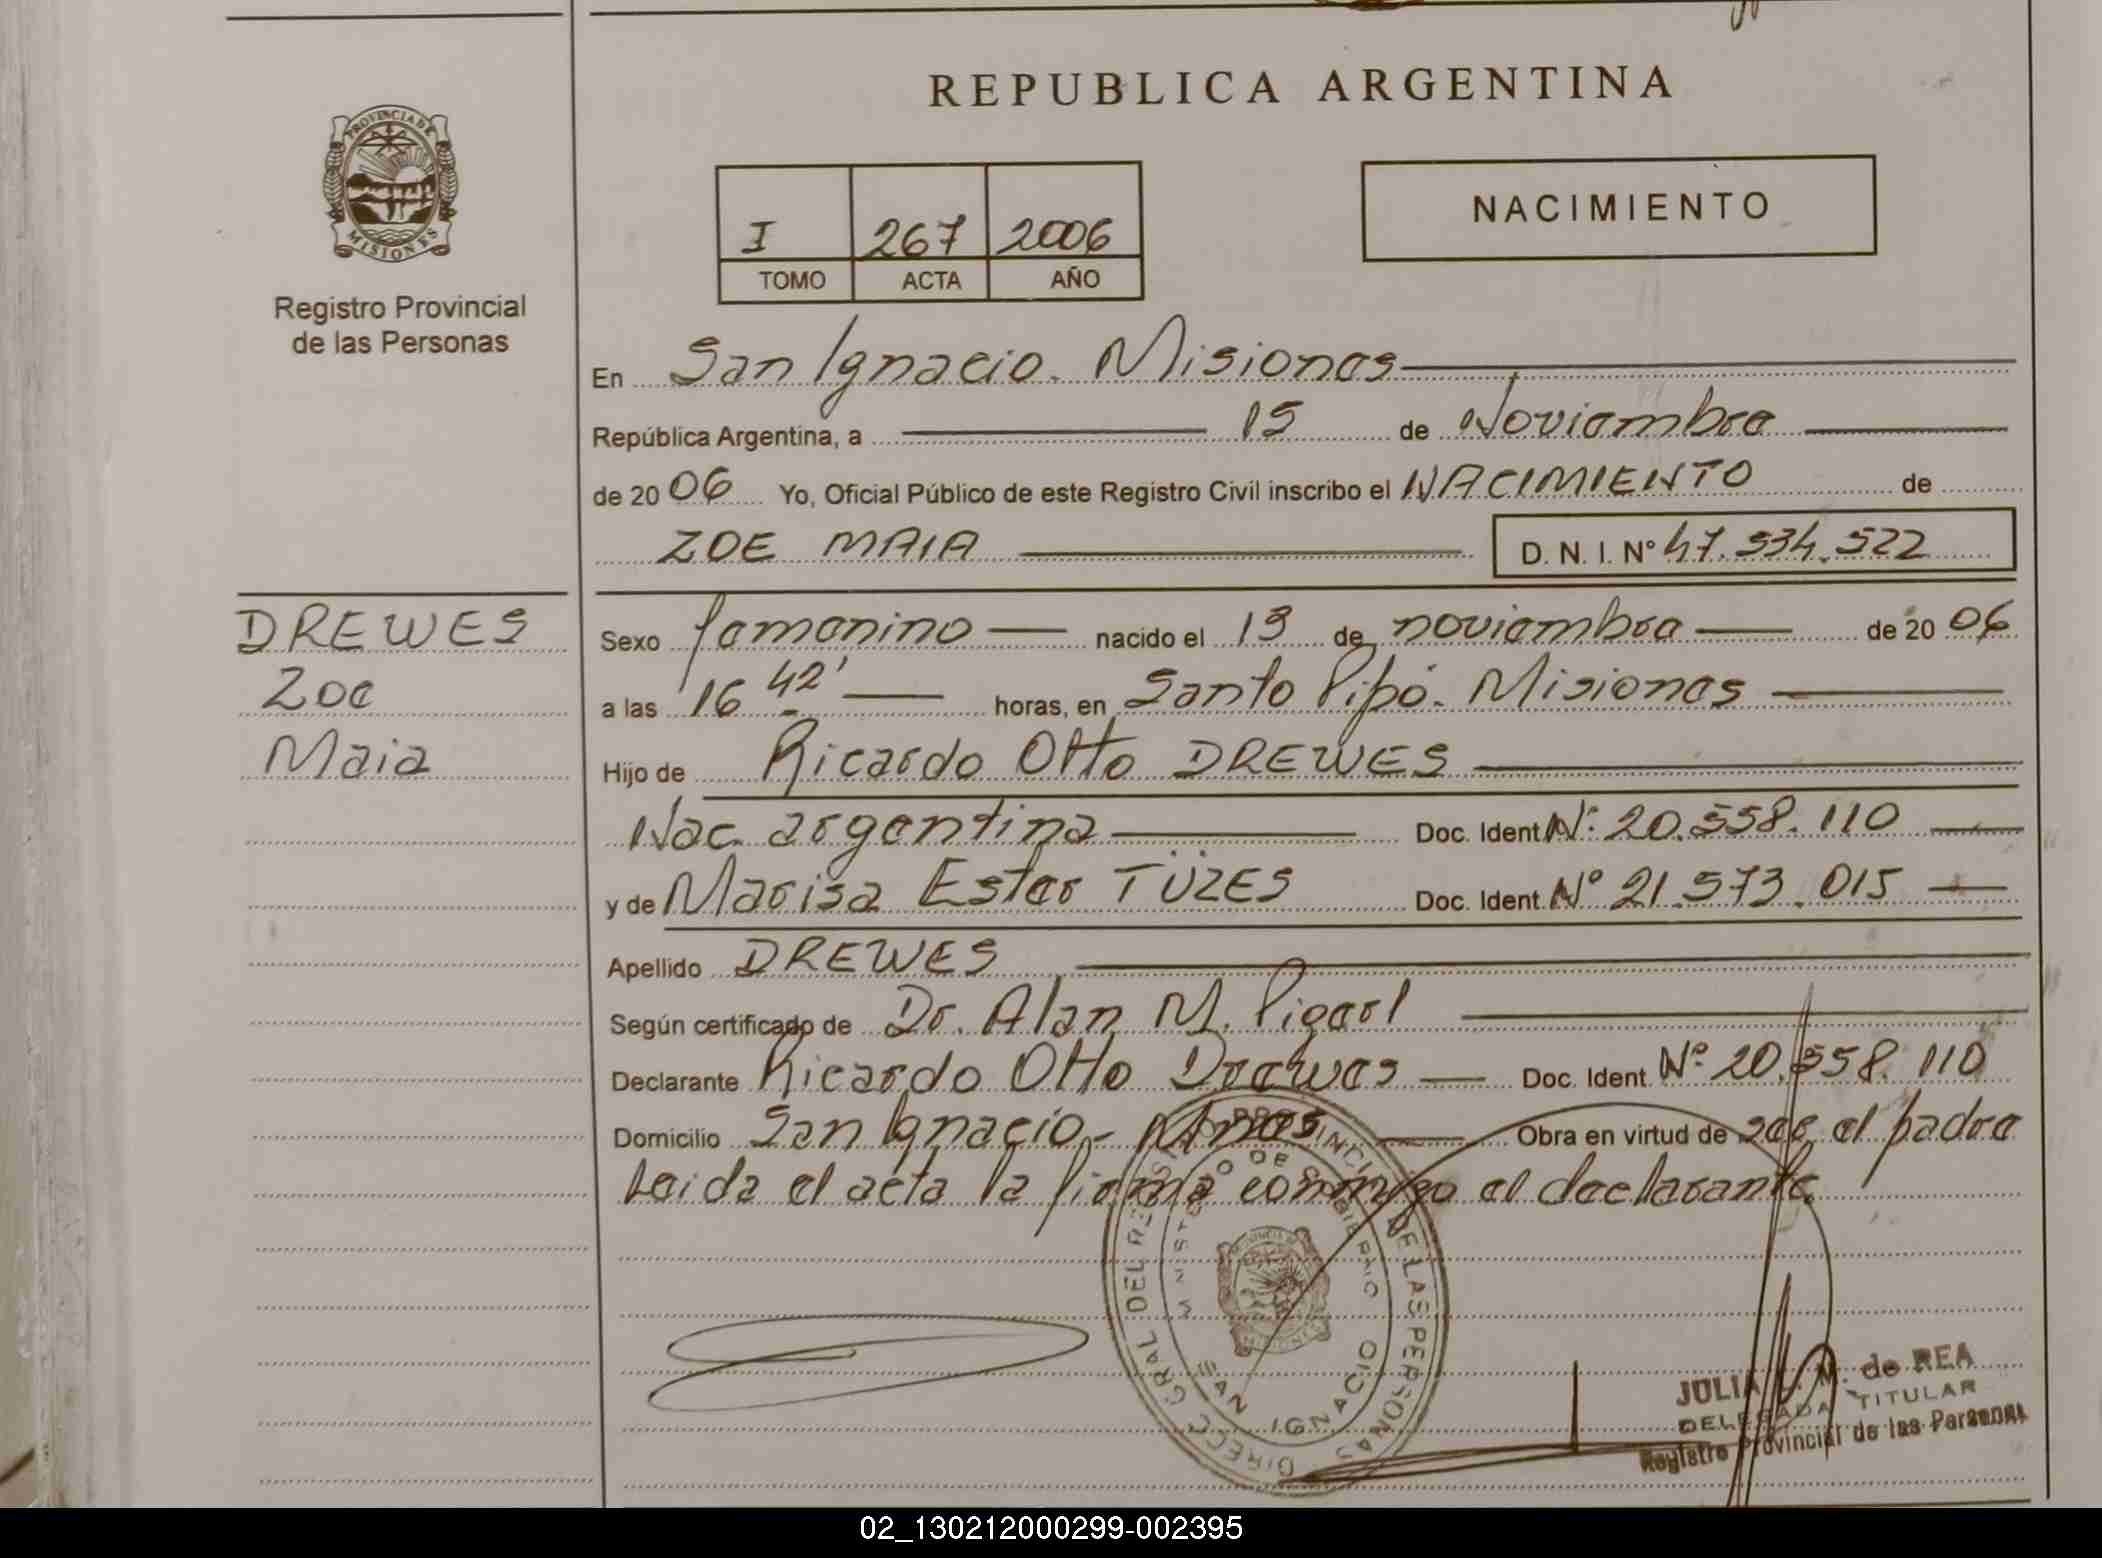 REPUBLICA ARGENTINA
PROVINCIA DE MISIONES
Registro Provincial
de las Personas
I 267 2006
TOMO ACTA AÑO
NACIMIENTO
En San Ignacio. Misiones
República Argentina, a 15 de Noviembre
de 20 06 Yo, Oficial Público de este Registro Civil inscribo el NACIMIENTO de
ZOE MAIA D. N. I. Nº 47.534.522
DREWES
Zoe
Maia
Sexo femenino nacido el 13 de noviembre de 20 06
a las 16 42' horas, en Santo Pipó. Misiones
Hijo de Ricardo Otto DREWES
Nac. argentina Doc. Ident. Nº 20.558.110
y de Marisa Ester TÜZES Doc. Ident. Nº 21.573.015
Apellido DREWES
Según certificado de Dr. Alan M.
Declarante Ricardo Otto Drewes Doc. Ident. Nº 20.558.110
Domicilio San Ignacio - Mnes Obra en virtud de ser el padre
Leida el acta la firma conmigo el declarante
DIRECC GRAL DEL REG PROVINCIAL DE LAS PERSONAS
MINISTERIO DE GOBIERNO
SAN IGNACIO
JULIA M. de REA
DELEGADA TITULAR
Registro Provincial de las Personas
02_130212000299-002395